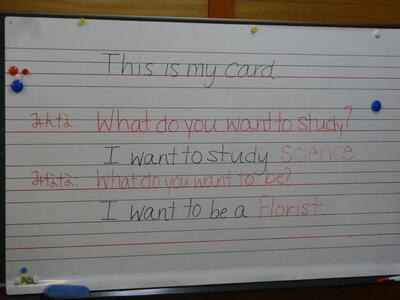 This is my card
みんな: What do you want to study?
I want to study science
みんな: What do you want to be?
I want to be a florist.